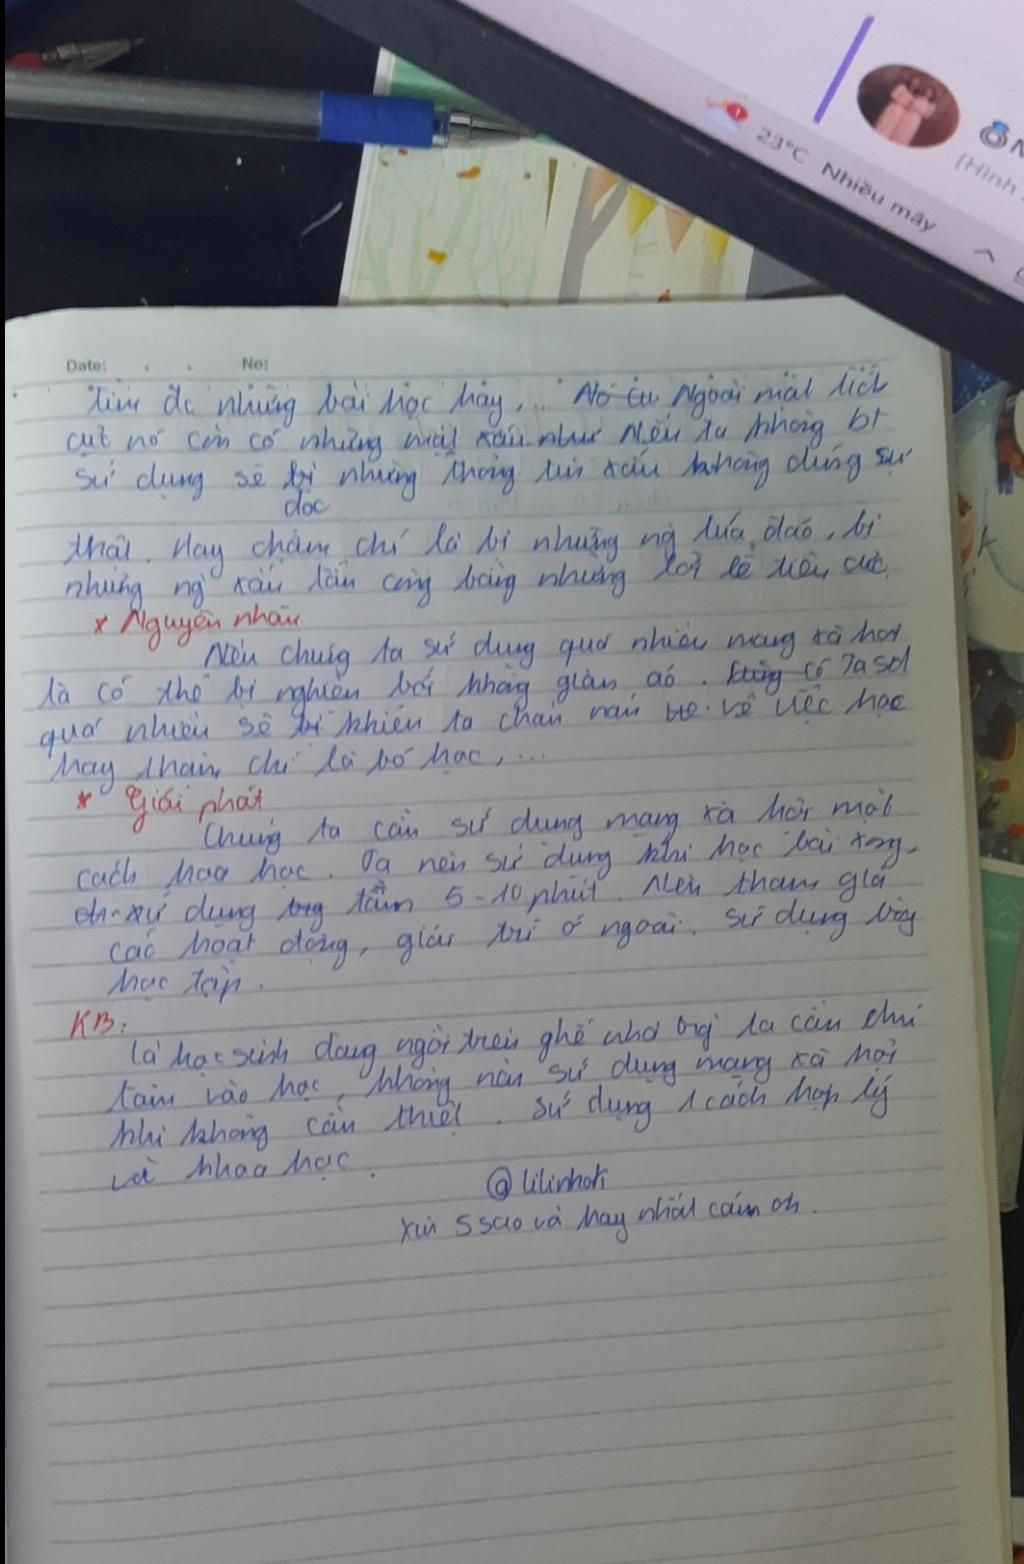 23°C Nhiều mây
(Hình
Date: . . No:
tìm đc những bài học hay, ... Nó có Ngoài mặt tích
cực nó còn có những mặt xấu như Nếu ta không bt
sử dụng sẽ bị những thông tin xấu không đúng sự
đọc
thật. Hay chậm chí là bị những ng lừa đảo, bị
những ng xấu tấn công bằng những lời lẽ tiêu cực.
* Nguyên nhân
Nếu chúng ta sử dụng quá nhiều mạng xã hội
là có thể bị nghiện bởi không gian ảo. Cũng có Ta sd
quá nhiều sẽ bị khiến ta chán nản về việc học
hay thậm chí là bỏ học, ...
* Giải phát
Chúng ta cần sử dụng mạng xã hội một
cách hoa học. Ta nên sử dụng khi học bài xong,
sử dụng trg tầm 5-10 phút. Nên tham gia
các hoạt động, giải trí ở ngoài. Sử dụng
học tập.
KB:
Là học sinh đang ngồi trên ghế nhà trg ta cần chú
tâm vào học, không nên sử dụng mạng xã hội
khi không cần thiết. Sử dụng 1 cách hợp lý
và khoa học.
@lilinhoti
Xin 5 sao và hay nhất cảm ơn.